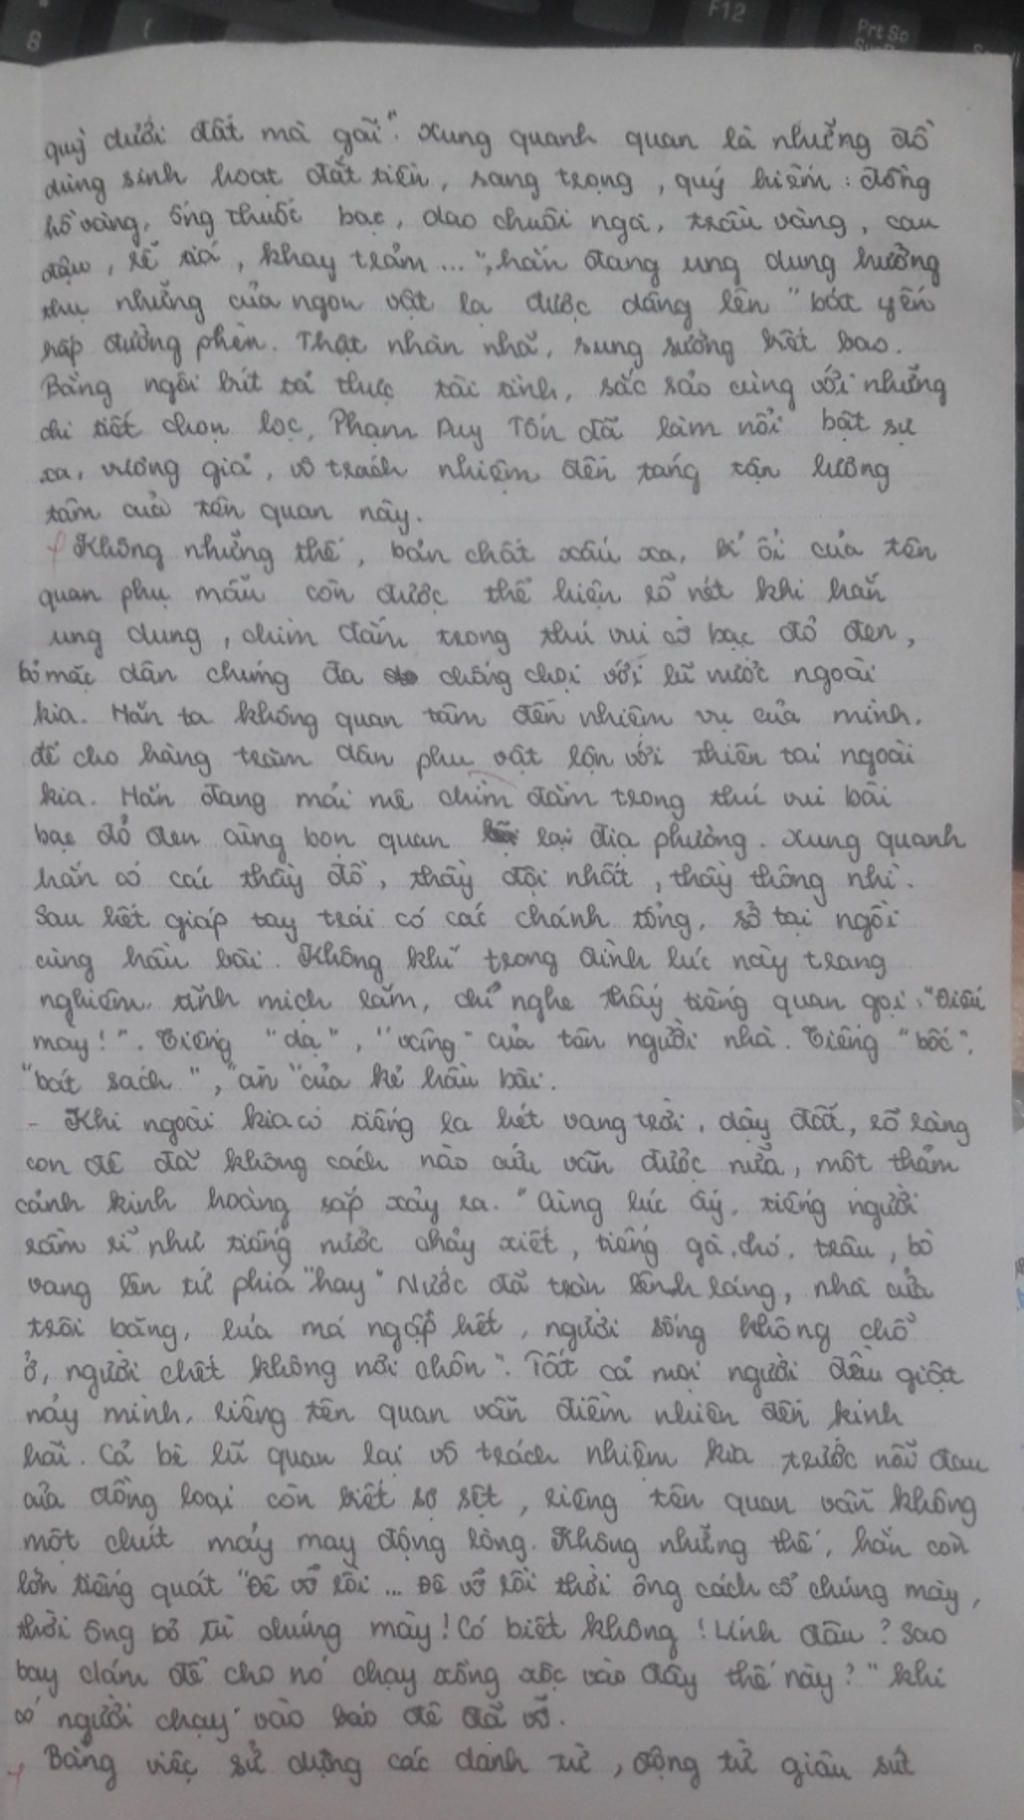 F12
Prt Sc
8
quỳ dưới đất mà gãi". Xung quanh quan là những đồ
dùng sinh hoạt đắt tiền, sang trọng, quý hiếm: đồng
hồ vàng, ống thuốc bạc, dao chuôi ngà, trầu vàng, cau
đậu, rễ tiá, khay trảm...", hắn đang ung dung hưởng
thụ những của ngon vật lạ được dâng lên "bát yến
hấp đường phèn. Thật nhàn nhã, sung sướng biết bao.
Bằng ngòi bút tả thực tài tình, sắc sảo cùng với những
chi tiết chọn lọc, Phạm Duy Tốn đã làm nổi bật sự
xa, vương giả, vô trách nhiệm đến táng tận lương
tâm của tên quan này.
Không những thế, bản chất xấu xa, bỉ ổi của tên
quan phụ mẫu còn được thể hiện rõ nét khi hắn
ung dung, chìm đắm trong thú vui cờ bạc đỏ đen,
bỏ mặc dân chúng đa chống chọi với lũ nước ngoài
kia. Hắn ta không quan tâm đến nhiệm vụ của mình.
để cho hàng trăm dân phu vật lộn với thiên tai ngoài
kia. Hắn đang mải mê chìm đắm trong thú vui bài
bạc đỏ đen cùng bọn quan lại địa phương. Xung quanh
hắn có các thầy đồ, thầy đội nhất, thầy thông nhì.
Sau hết giáp tay trái có các chánh tổng, sở tại ngồi
cùng hầu bài. Không khí trong đình lúc này trang
nghiêm, tĩnh mịch lắm, chỉ nghe thấy tiếng quan gọi: "Điếu
mày!". Tiếng "dạ", "vâng" của tên người nhà. Tiếng "bốc",
"bát sách", "ăn" của kẻ hầu bài.
- Khi ngoài kia có tiếng la hét vang trời, dậy đất, rõ ràng
con đê đã không cách nào cứu vãn được nữa, một thảm
cảnh kinh hoàng sắp xảy ra. "Cùng lúc ấy, tiếng người
rầm rĩ như tiếng nước chảy xiết, tiếng gà, chó, trâu, bò
vang lên tứ phía "hay" Nước đã tràn lênh láng, nhà cửa
trôi băng, lúa má ngập hết, người sống không chỗ
ở, người chết không nơi chôn". Tất cả mọi người đều giật
nảy mình, riêng tên quan vẫn điềm nhiên đến kinh
hãi. Cả bè lũ quan lại vô trách nhiệm kia trước nỗi đau
của đồng loại còn biết sợ sệt, riêng tên quan vẫn không
một chút mảy may động lòng. Không những thế, hắn còn
lớn tiếng quát "Đê vỡ rồi... Đê vỡ rồi thời ông cách cổ chúng mày,
thời ông bỏ tù chúng mày! Có biết không! Lính đâu? Sao
bay dám để cho nó chạy xồng xộc vào đây thế này?" khi
có người chạy vào báo đê đã vỡ.
+ Bằng việc sử dụng các danh từ, động từ giàu sức